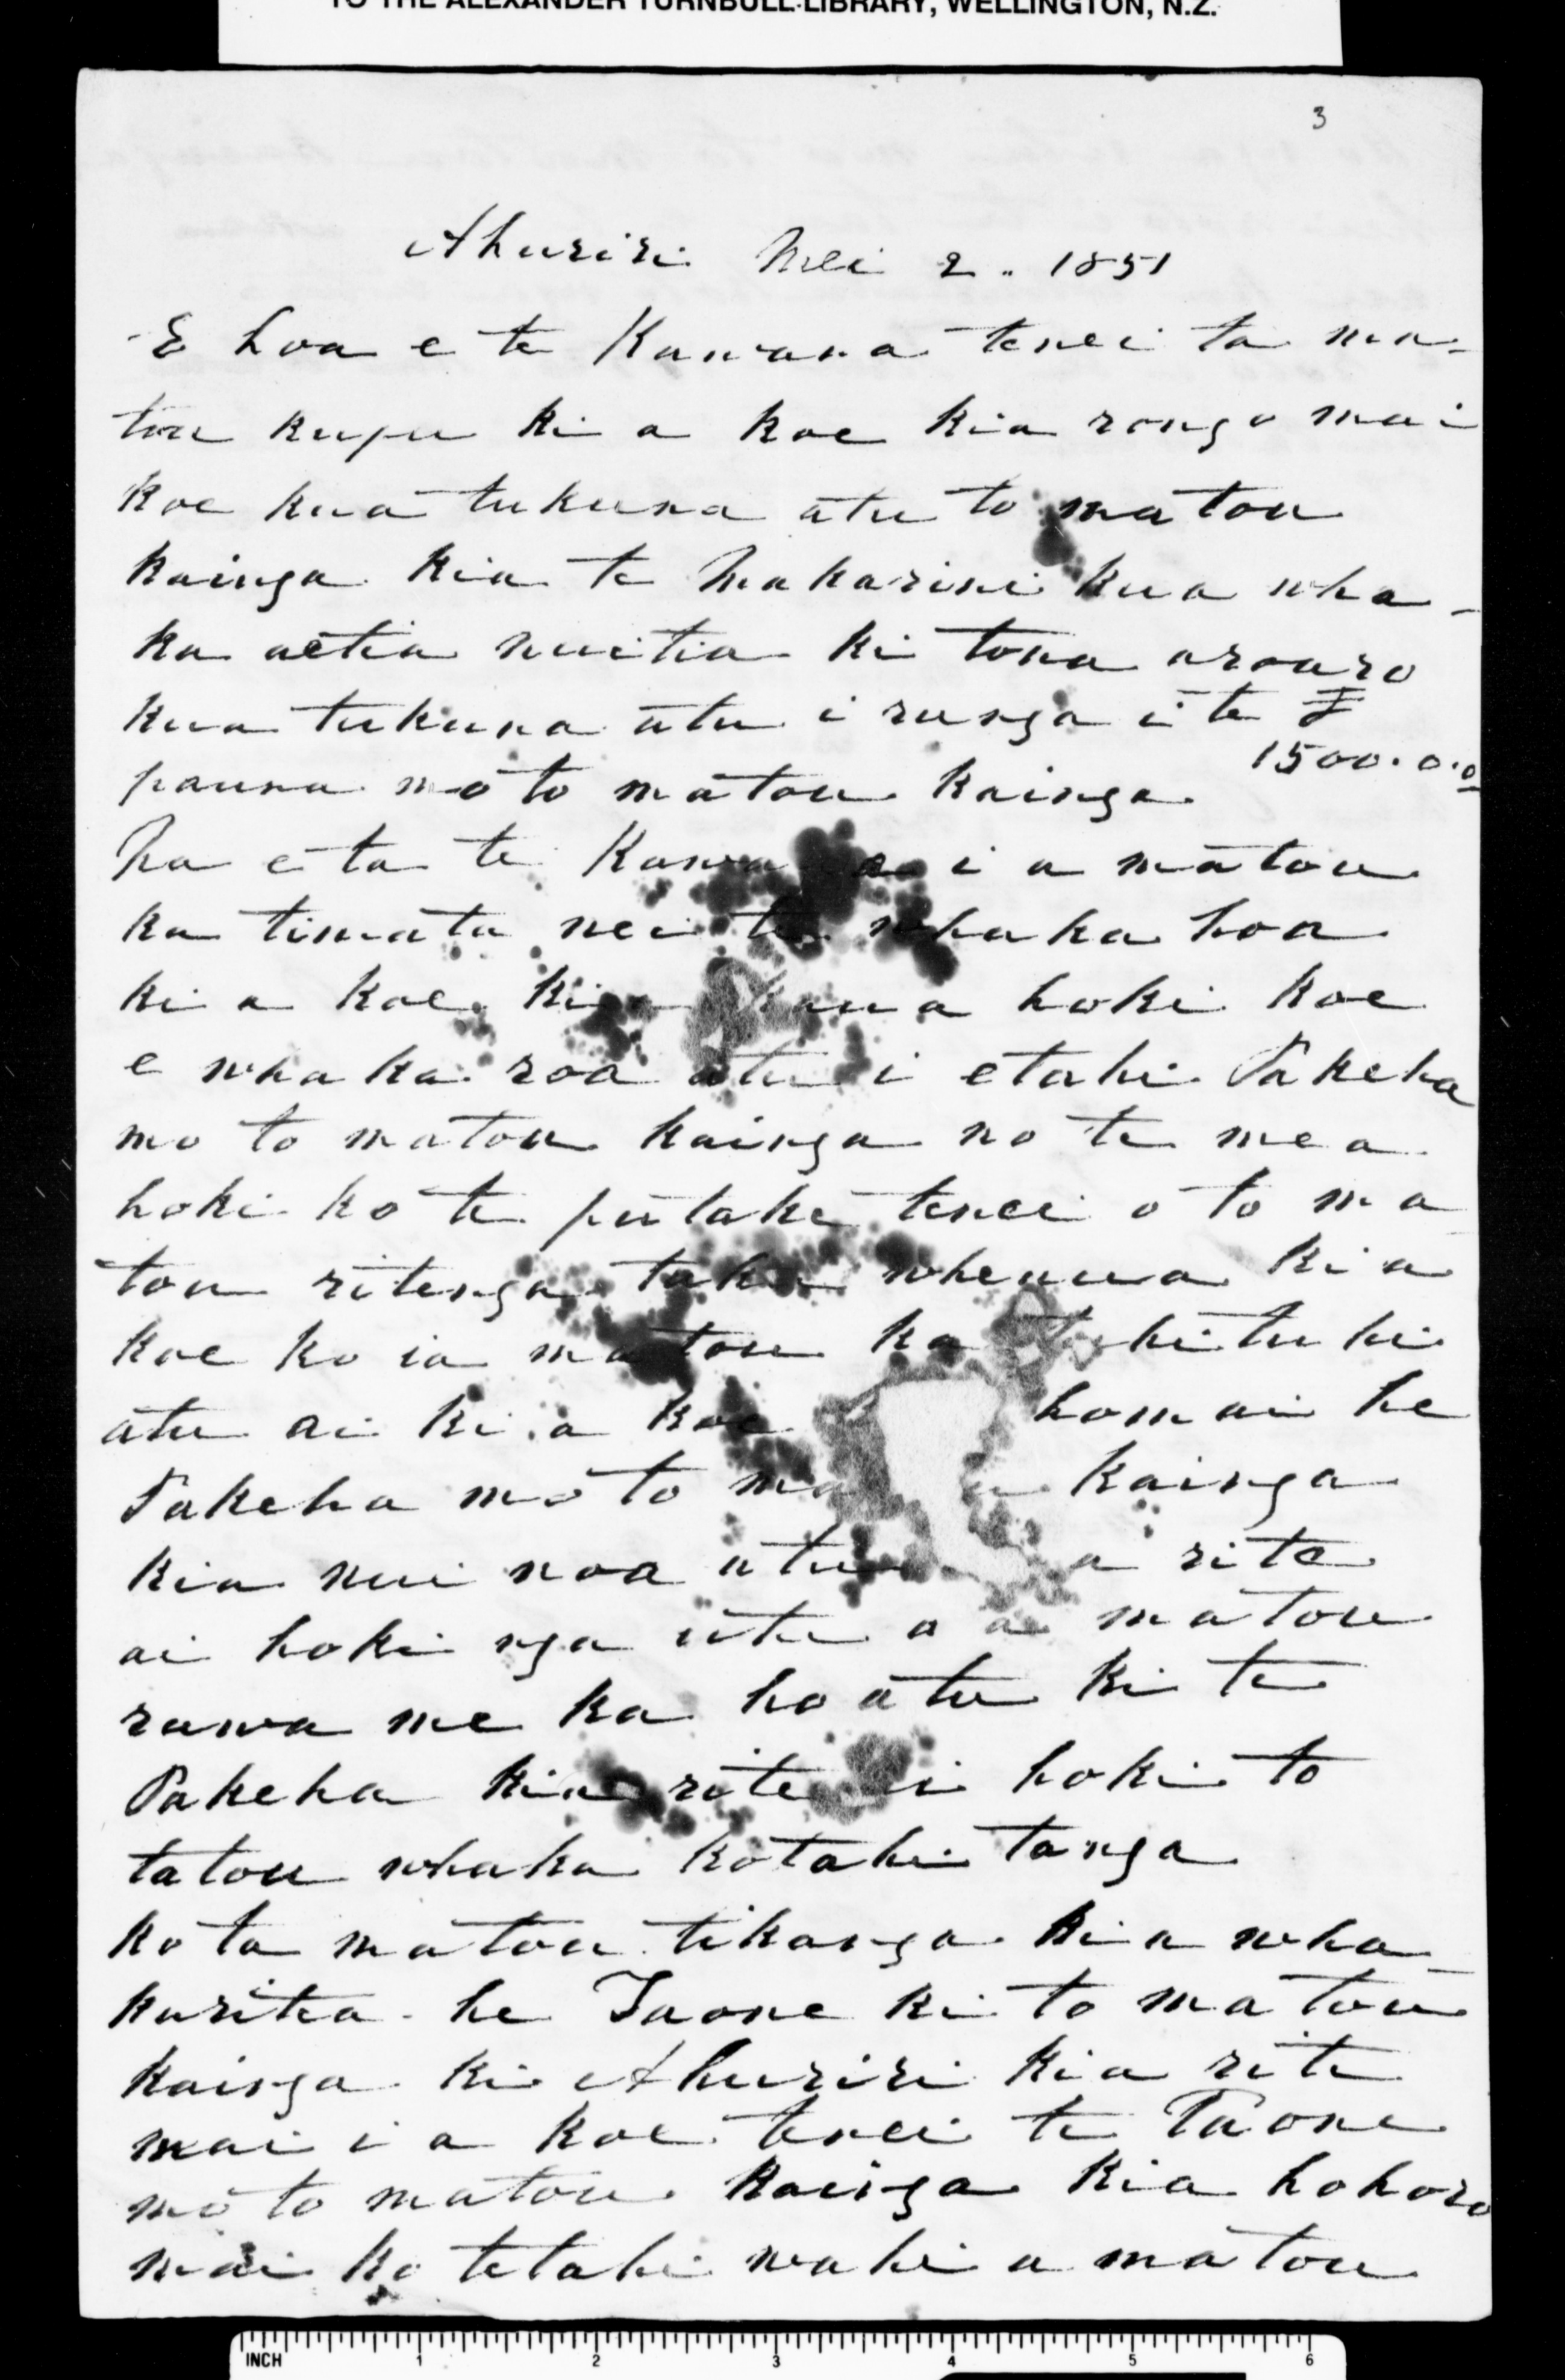 TO THE ALEXANDER TURNBULL LIBRARY, WELLINGTON, N.Z.
3
Ahuriri Mei 2. 1851
E hoa e te Kawana tenei ta ma-
tou kupu ki a koe kia rongo mai
koe kua tukuna atu to matou
kainga kia te Makarini kua wha-
ka aetia nuitia ki tona aroaro
kua tukuna atu i runga i te £
1500.0.0
pauna mo to matou kainga
Na e ta te Kawana i a matou
ka timata nei te whaka hoa
ki a koe hoki koe
e whaka roa atu i etahi Pakeha
mo to matou kainga no te mea
hoki ko te putake tenei o to ma
tou ritenga tuku whenua ki a
koe ko ia matou ka tuhituhi
atu ai ki a koe homai he
Pakeha mo to kainga
kia nui noa atu rite
ai hoki nga utu o a matou
rawa me ka hoatu ki te
Pakeha kia rite ai hoki to
tatou whaka kotahi tanga
ko ta matou tikanga kia wha-
karitea he Taone ki to matou
kainga ki Ahuriri kia rite
mai i a koe tenei te Taone
mo to matou kainga kia hohoro
mai ko tetahi wahi a matou
INCH 1 2 3 4 5 6